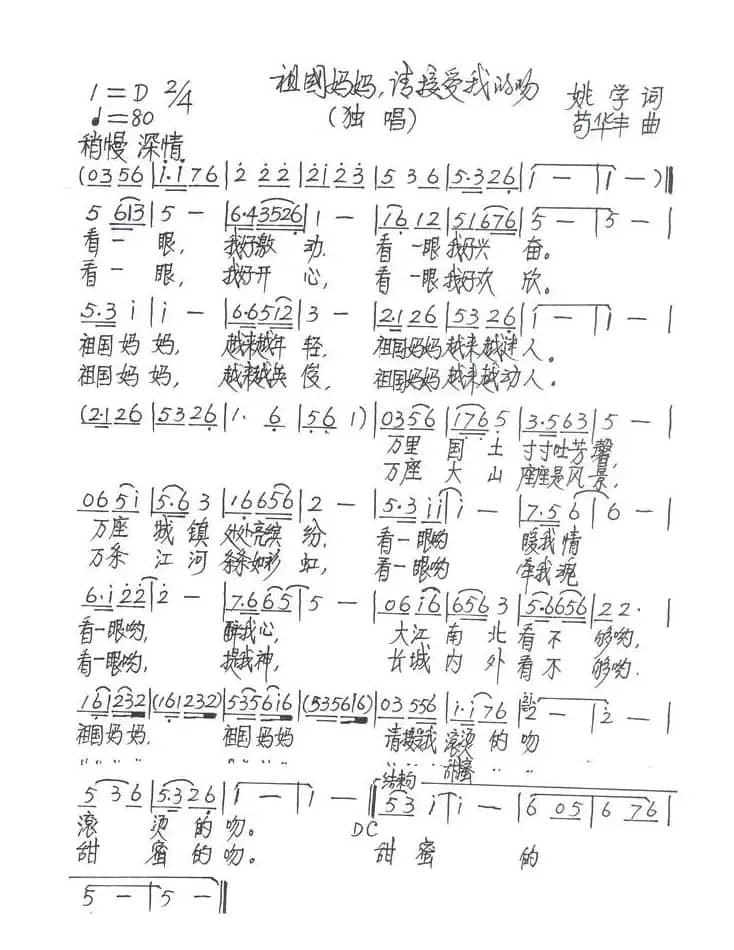 祖国妈妈,请接受我的吻
(独唱)
1=D 2/4
♩=80
姚学词
苟华丰曲
稍慢 深情
(0356|i·i76|222|2i23|536|5·326|i—|i—)‖
5 6i3|5—|6·43526|1—|i6 12|51676|5—|5—|
看一眼, 我好激动. 看一眼我好兴奋。
看一眼, 我好开心, 看一眼我好欢欣.
5·3 i|i—|6·65i2|3—|2·126|5326|i—|i—|
祖国妈妈, 越来越年轻, 祖国妈妈越来越迷人。
祖国妈妈, 越来越英俊, 祖国妈妈越来越动人.
(2·126|5326|1. 6|561)|0356|i765|3·563|5—|
万里国土寸寸吐芳馨,
万座大山座座是风景,
065i|5·63|16656|2—|5·3ii|i—|7·56|6—|
万座城镇处处亮缤纷, 看一眼哟 暖我情
万条江河条条如彩虹, 看一眼哟 牵我魂
6·i22|2—|7·665|5—|06i6|6563|5·6656|22·|
看一眼哟, 醉我心, 大江南北看不够哟,
看一眼哟, 提我神, 长城内外看不够哟.
16i232|(161232)|5356i6|(535616)|03556|i·i76|2—|2—|
祖国妈妈. 祖国妈妈 请接受我滚烫的吻
〃〃〃〃 〃〃〃〃 甜蜜〃〃
536|5·326|i—|i—‖结束句 53i|i—|605|676|
滚烫的吻。 DC
甜蜜的吻。 甜蜜的
5—|5—‖